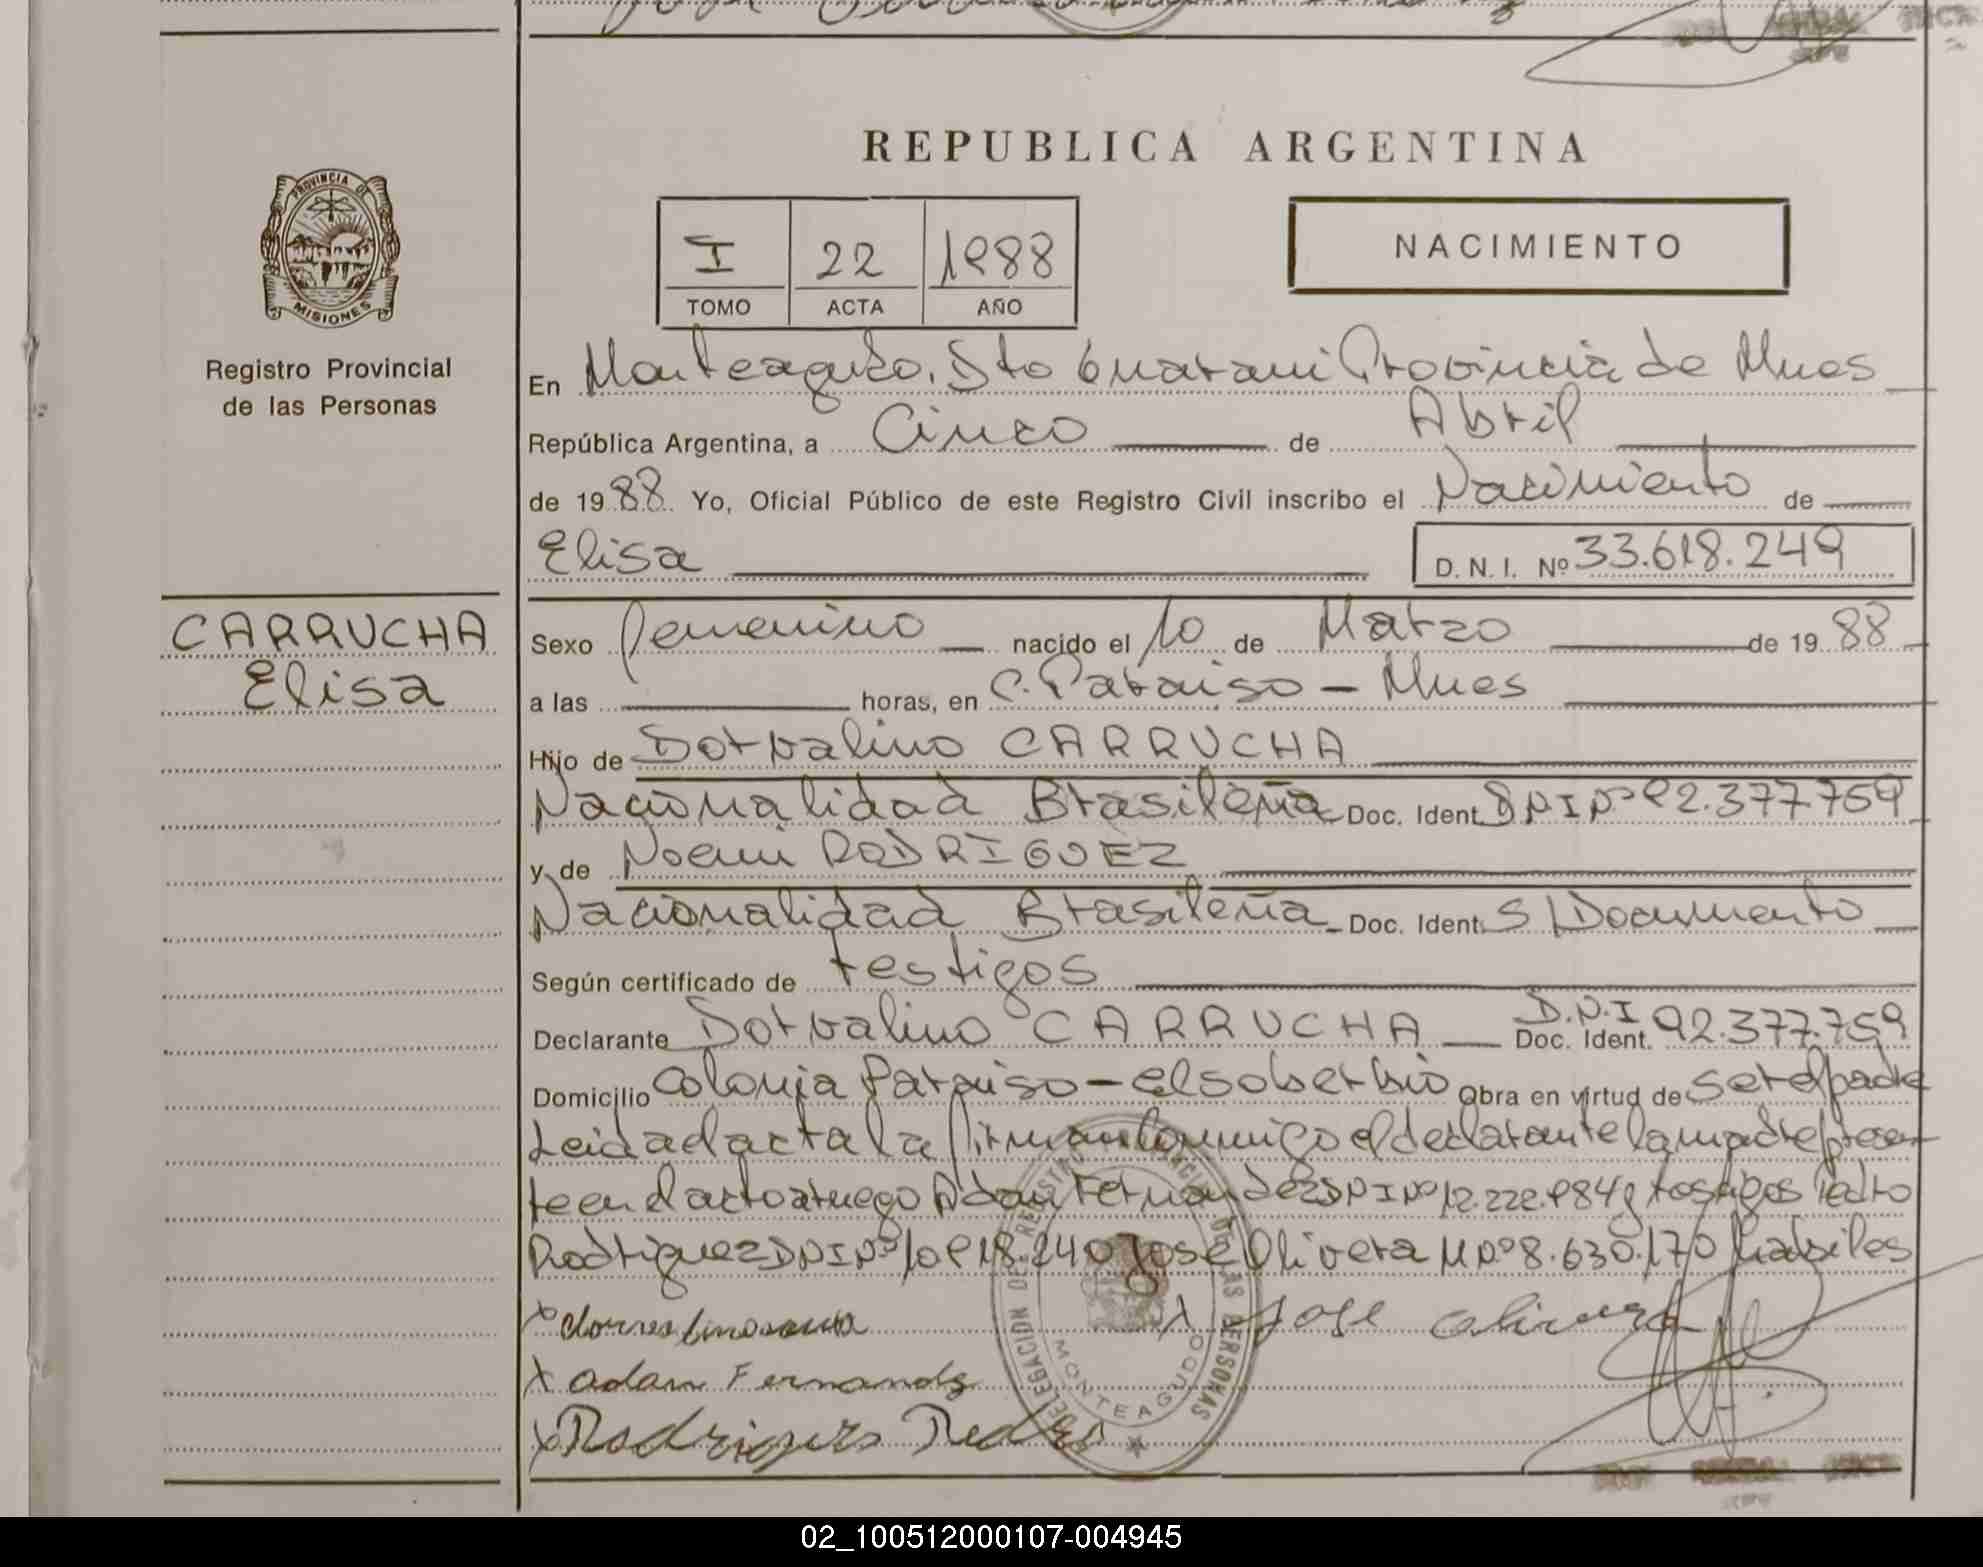 REPUBLICA ARGENTINA
PROVINCIA DE
MISIONES
Registro Provincial
de las Personas
I 22 1988
TOMO ACTA AÑO
NACIMIENTO
En Monteagudo, Dto Guarani Provincia de Mnes
República Argentina, a Cinco de Abril
de 1988 Yo, Oficial Público de este Registro Civil inscribo el Nacimiento de
Elisa D.N.I. Nº 33.618.249
CARRUCHA
Elisa
Sexo femenino nacido el 10 de Marzo de 1988
a las horas, en C. Paraiso - Mnes
Hijo de Dorvalino CARRUCHA
Nacionalidad Brasileña Doc. Ident. DNI Nº 92.377.759
y de Noemi RODRIGUEZ
Nacionalidad Brasileña Doc. Ident. S/Documento
Según certificado de testigos
Declarante Dorvalino CARRUCHA D.N.I Doc. Ident. 92.377.759
Domicilio Colonia Paraiso - el soberbio Obra en virtud de ser el padre
Leida el acta la firman conmigo el declarante la madre presen
te en el acto a ruego Adan Fernandez DNI Nº 12.222.984 y testigos Pedro
Rodriguez DNI Nº 10.918.240 José Olivera M Nº 8.630.170 habiles
X José Olivera
X adan Fernandz
X Rodrigues Pedro
DELEGACION DE REGISTRO DE LAS PERSONAS
MONTEAGUDO
02_100512000107-004945